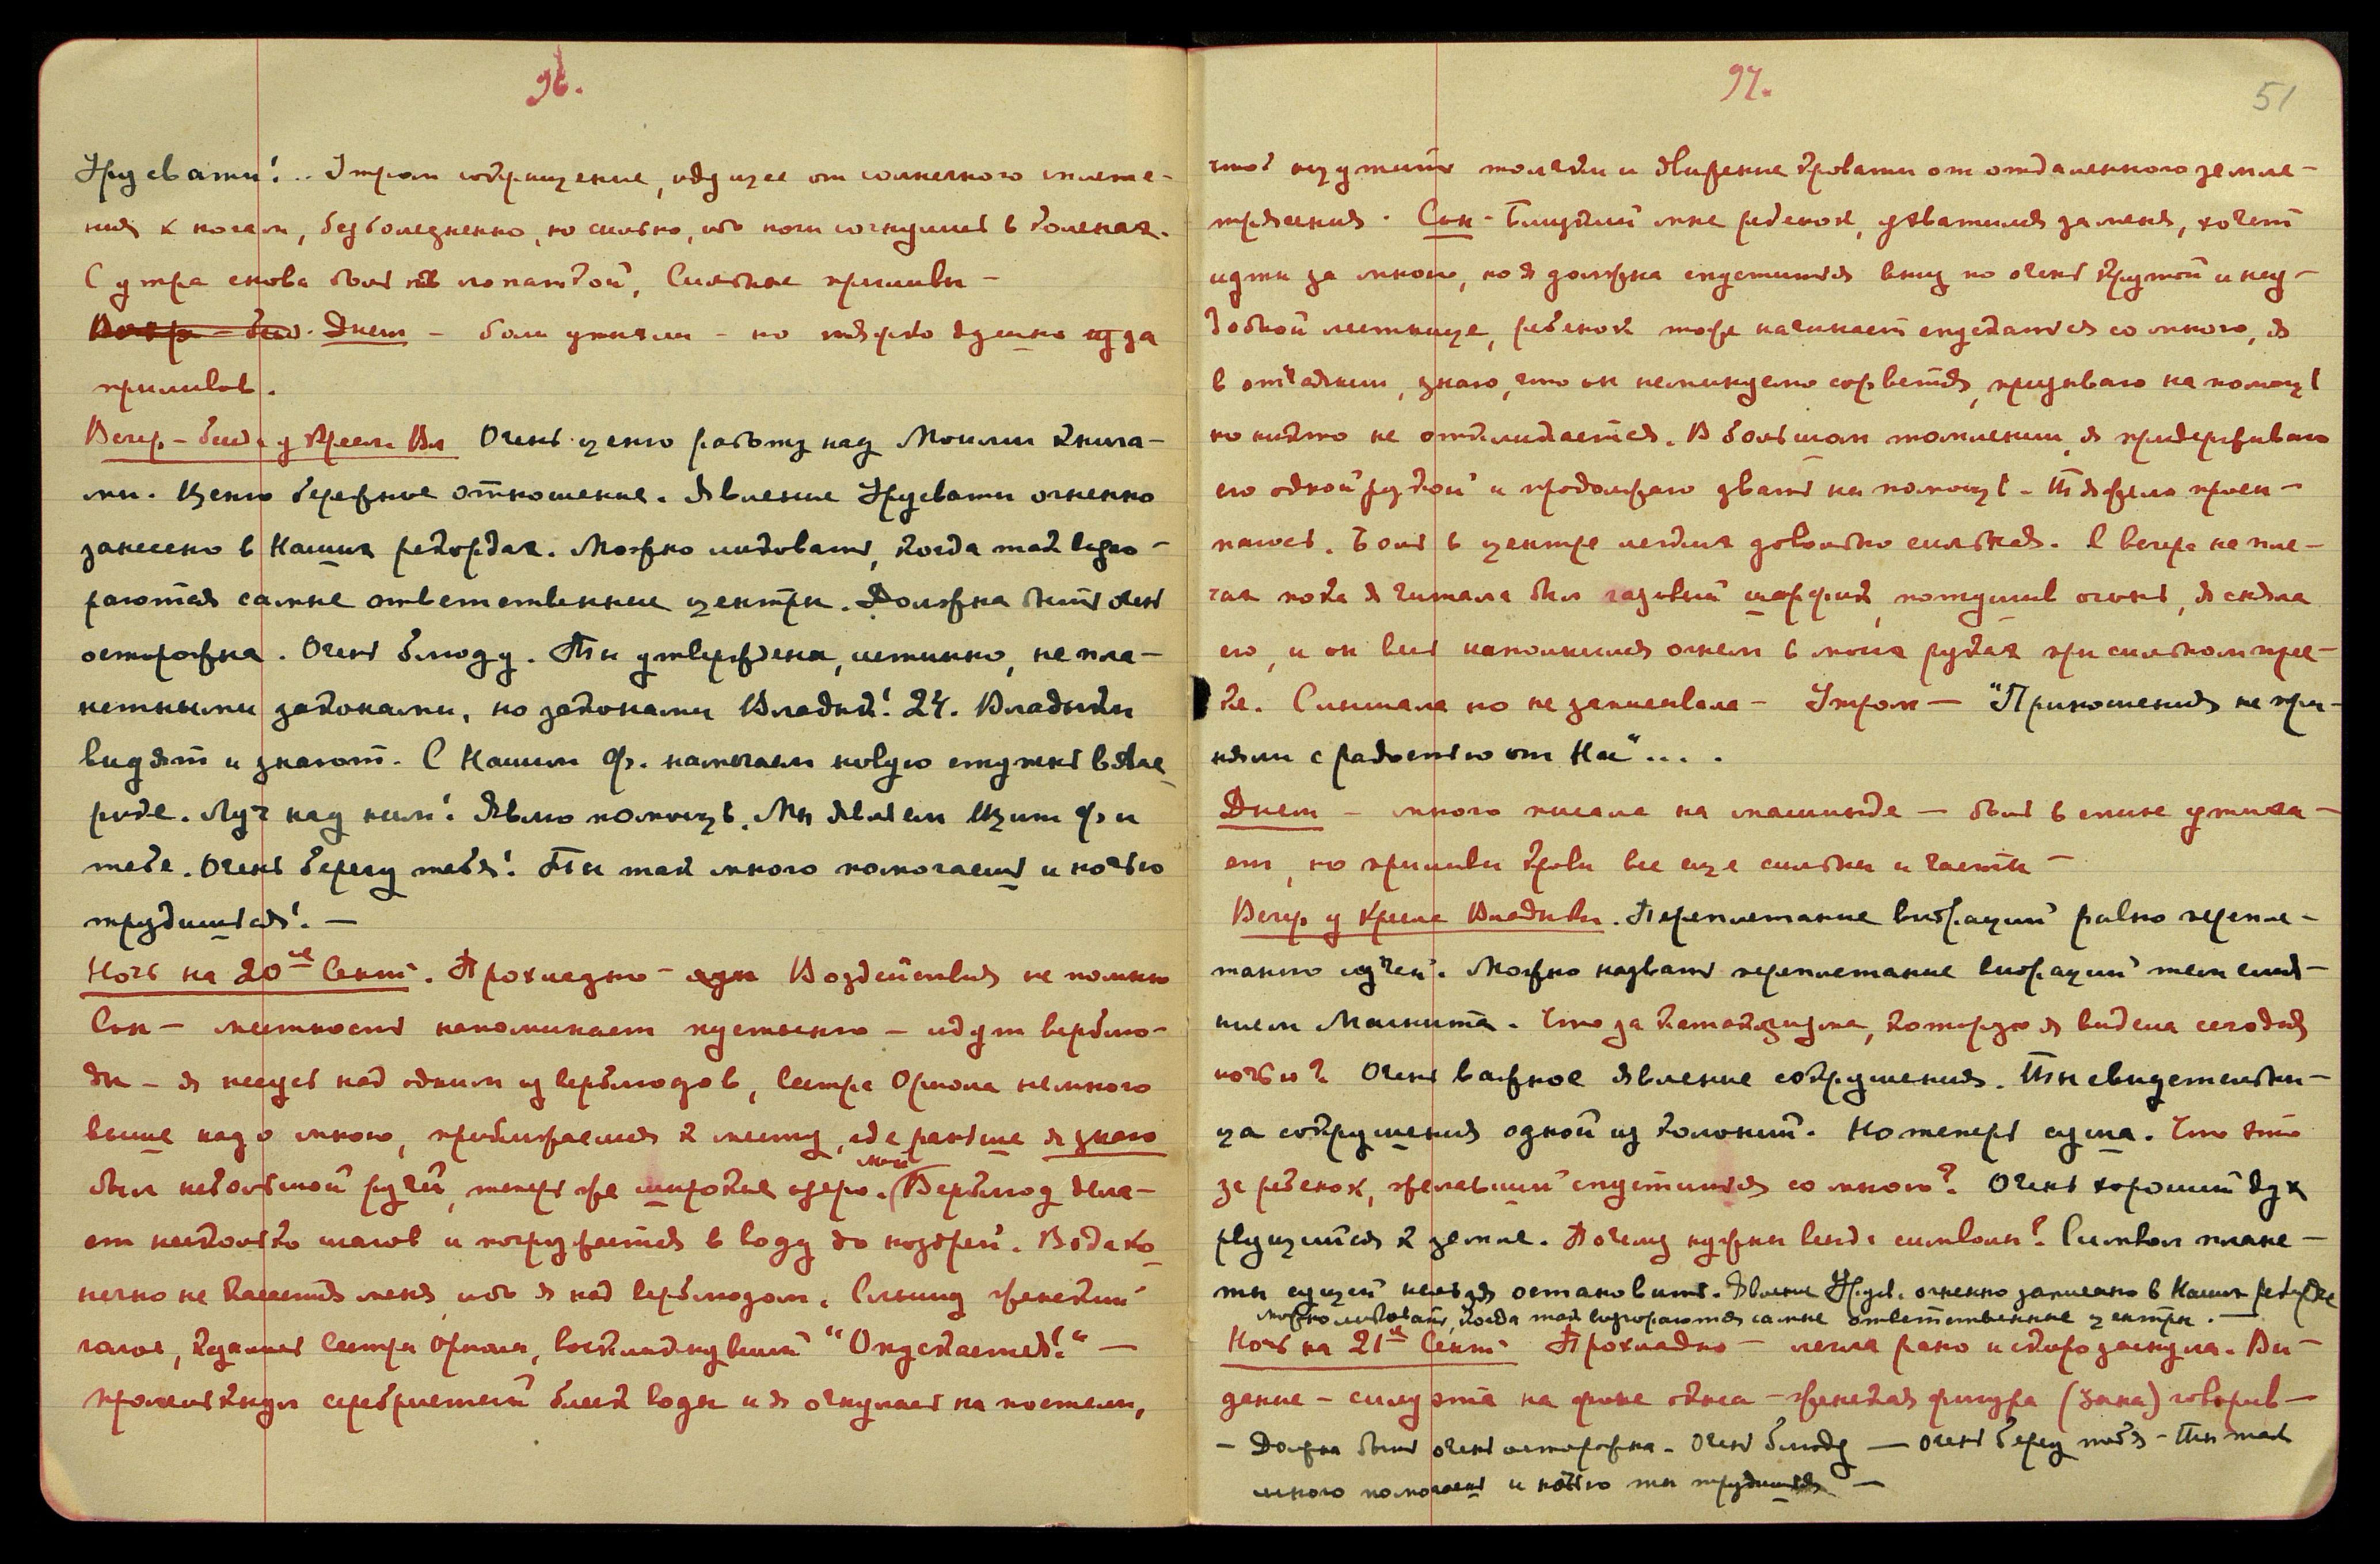 96.
Урусвати!.. Утром сокращение, идущее от солнечного сплете-
ния к ногам, безболезненно, но сильно, ибо ноги согнулись в коленах.
С утра снова боль под лопаткой, Сильные приливы –
Днем – боли утихли – но тяжко душно из за
приливов.
Вечер – беседа у Кресла Вл Очень ценю работу над Моими книга-
ми. Ценю бережное отношение. Явление Урусвати огненно
занесено в Наших рекордах. Можно ликовать, когда так возго-
раются самые ответственные центры. Должна быть очень
осторожна. Очень блюду. Ты утверждена, истинно, не пла-
нетными законами, но законами Владык! 24. Владыки
видят и знают. С Нашим Ф. намечаем новую ступень в Аме-
рике. Луч над ним! Явлю помощь. Мы явлен Щит Ф. и
тебе. Очень берегу тебя! Ты так много помогаешь и ночью
трудишься! –
Ночь на 20ое Сент. Прохладно – Воздействия не помню
Сон – местность напоминает пустыню – идут верблю-
ды – я несусь над одним из верблюдов, Сестра Ориола немного
выше надо мною, приближаемся к месту, где раньше я знаю
был небольшой ручей, теперь же широкое озеро. Мой Верблюд дела-
ет несколько шагов и погружается в воду до ноздрей. Вода ко-
нечно не касается меня, ибо я над верблюдом. Слышу женский
голос, кажется Сестры Ориолы, воскликнувший "Опускается!" –
промелькнул серебристый блеск воды и я очнулась на постели,
97.
51
чтоб ощутить толчки и движение кровати от отдаленного земле-
трясения. Сон – Близкий мне ребенок, ухватился за меня, хочет
идти за мною, но я должна спуститься вниз по очень крутой и неу-
добной лестнице, ребенок тоже начинает спускаться со мною, я
в отчаянии, знаю, что он неминуемо сорвется, призываю на помощь
но никто не откликается. В большом томлении, я придерживаю
его одной рукой и продолжаю звать на помощь. Тяжело просы-
палась. Боль в центре легких довольно сильная. С вечера на пле-
чах пока я читала был газовый шарфик, потушив огонь, я сняла
его, и он весь наполнился огнем в моих руках при сильном трес-
ке. Слышала но не записывала – Утром – "Приношения не при-
няли с радостью от Нас"....
Днем – много писала на машинке – боль в спине утиха-
ет, но приливы крови все еще сильны и часты –
Вечер у Кресла Владыки. Переплетание вибраций равно перепле-
танию лучей. Можно назвать переплетание вибраций тем слия-
нием Магнита. Что за катаклизма, которую я видела сегодня
ночью? Очень важное явление сокрушения. Ты свидетельни-
ца сокрушения одной из колоний. Но теперь суша. Что это
за ребенок, желавший спуститься со мною? Очень хороший дух
рвущийся к земле. Почему нужны везде символы? Символ плане-
ты сущей нельзя остановить. Явление Урус. огненно записано в Наших рекордах
можно ликовать, когда так возгораются самые ответственные центры. –
Ночь на 21ое Сент. Прохладно – легла рано и скоро заснула. Ви-
дение – силуэта на фоне окна – женская фигура (Зина) говорив –
– Должна быть очень осторожна. Очень блюду – очень берегу тебя – Ты так
много помогаешь и ночью ты трудишься –